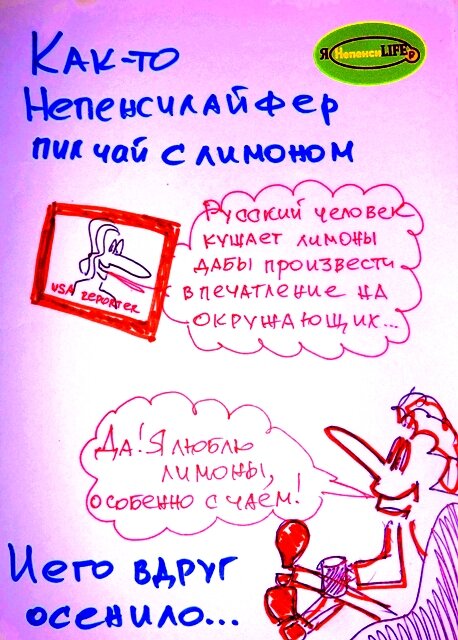 Как-то
Я НепенсиLIFEр
Непенсилайфер
пил чай с лимоном
Русский человек
кушает лимоны
дабы произвести
впечатление на
окружающих...
USA REPORTER
Да! Я люблю
лимоны,
особенно с чаем!
И его вдруг
осенило...